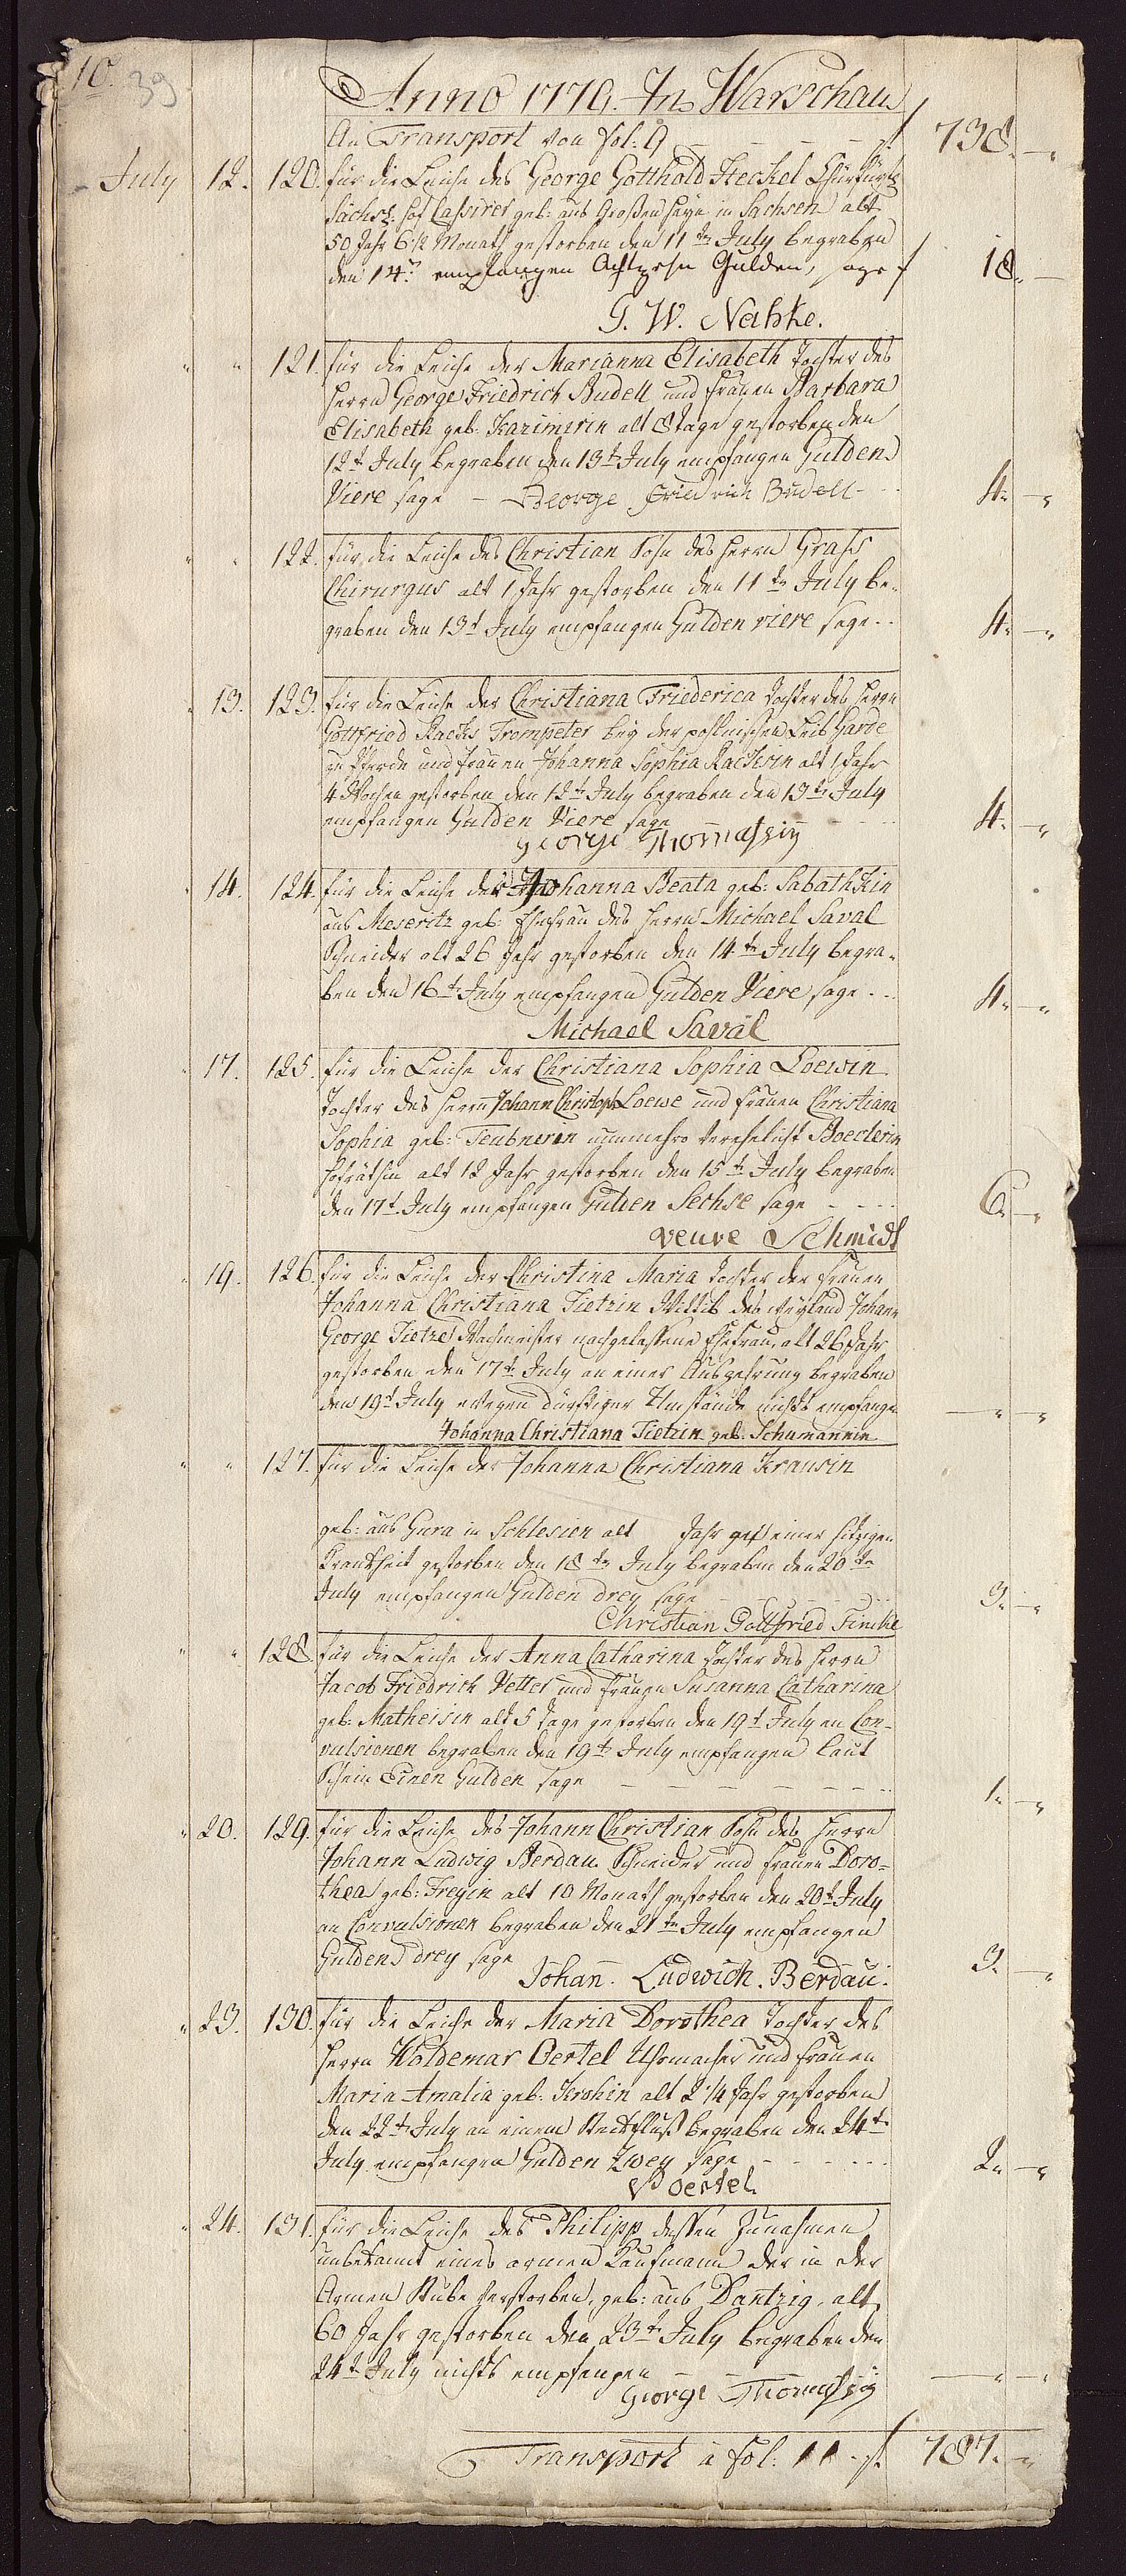 10. 39
Anno 1779. In Warschau
An Transport von fol: 9 - - - - f 738. -"
July 12. 120. für die Leiche des George Gotthold Heckel Churfürstl
Sächsl. Hof Cassirer geb: aus Großen Hayn in Sachsen alt
50 Jahr 6 1/2 Monath gestorben den 11ten July begraben
den 14t empfangen Achtzehn Gulden, sage f 18" -
G. W. Nahke.
" " 121. für die Leiche der Marianna Elisabeth Tochter des
Herrn George Friedrich Budell und Frauen Barbara
Elisabeth geb: Kazimirin alt 8 Tage gestorben den
12t July begraben den 13t July empfangen Gulden
Viere sage - George Friedrich Budell - 4" -"
" " 122. für die Leiche des Christian Sohn des Herrn Grahs
Chirurgus alt 1 Jahr gestorben den 11ten July be-
graben den 13t July empfangen Gulden viere sage . . 4" -"
" 13. 123. für die Leiche der Christiana Friederica Tochter des Herrn
Gottfried Racks Trompeter bey der pohlnischen Leib Garde
zu Pferde und Frauen Johanna Sophia Rackin alt 1 Jahr
4 Wochen gestorben den 12t July begraben den 13ten July
empfangen Gulden Viere sage - - - - 4" -"
George Thomassig
" 14. 124. für die Leiche der Johanna Beata geb: Sabathkin
aus Meseritz geb: Ehefrau des Herrn Michael Saval
Schneider alt 26 Jahr gestorben den 14ten July begra-
ben den 16t July empfangen Gulden Viere sage . . . 4" -"
Michael Saval
" 17. 125. für die Leiche der Christiana Sophia Loewin
Tochter des Herrn Johann Christoph Loewe und Frauen Christiana
Sophia geb: Teubnerin nunmehro verehelicht Boeclerin
Hofräthin alt 12 Jahr gestorben den 15t July begraben
den 17t July empfangen Gulden Sechse sage - - - 6" -"
veuve Schmidt
" 19. 126. für die Leiche der Christina Maria Tochter der Frauen
Johanna Christiana Tietzin Wittib des weyland Johann
George Tietze Wachmeister nachgelassene Ehefrau, alt 26 Jahr
gestorben den 17t July an einer Auszehrung begraben
den 19t July wegen dürftiger Umstände nichts empfangen -" -"
Johanna Christiana Tietzin geb. Schumannin
" " 127. für die Leiche der Johanna Christiana Krausin
geb: aus Gura in Schlesien alt Jahr einer hitzigen
Krankheit gestorben den 18ten July begraben den 20ten
July empfangen Gulden drey sage - - - - 3" -"
Christian Gottfried Fincke
" " 128. für die Leiche der Anna Catharina Tochter des Herrn
Jacob Friedrich Vetter und Frauen Susanna Catharina
geb: Matheisin alt 5 Tage gestorben den 19t July an Con-
vulsionen begraben den 19t July empfangen laut
Schein Einen Gulden sage - - - - - - 1" -"
" 20. 129. für die Leiche des Johann Christian Sohn des Herrn
Johann Ludwig Berdau Schneider und Frauen Doro-
thea geb: Freyin alt 10 Monath gestorben den 20t July
an Convulsionen begraben den 21ten July empfangen
Gulden drey sage 3" -"
Johan. Ludwich. Berdau.
" 23. 130. für die Leiche der Maria Dorothea Tochter des
Herrn Woldemar Oertel Uhrmacher und Frauen
Maria Amalia geb: Krohin alt 2 1/4 Jahr gestorben
den 22t July an einem Steckfluß begraben den 24t
July empfangen Gulden Zwey sage - - - - - 2" -"
W Oertel
" 24. 131. für die Leiche des Philipp dessen Zunahmen
unbekannt eines armen Kaufmann der in der
Armen Stube verstorben, geb: aus Dantzig, alt
60 Jahr gestorben den 23t July begraben den
24t July nichts empfangen - - -" -"
George Thomassig
Transport a fol: 11 - f. 787. -"